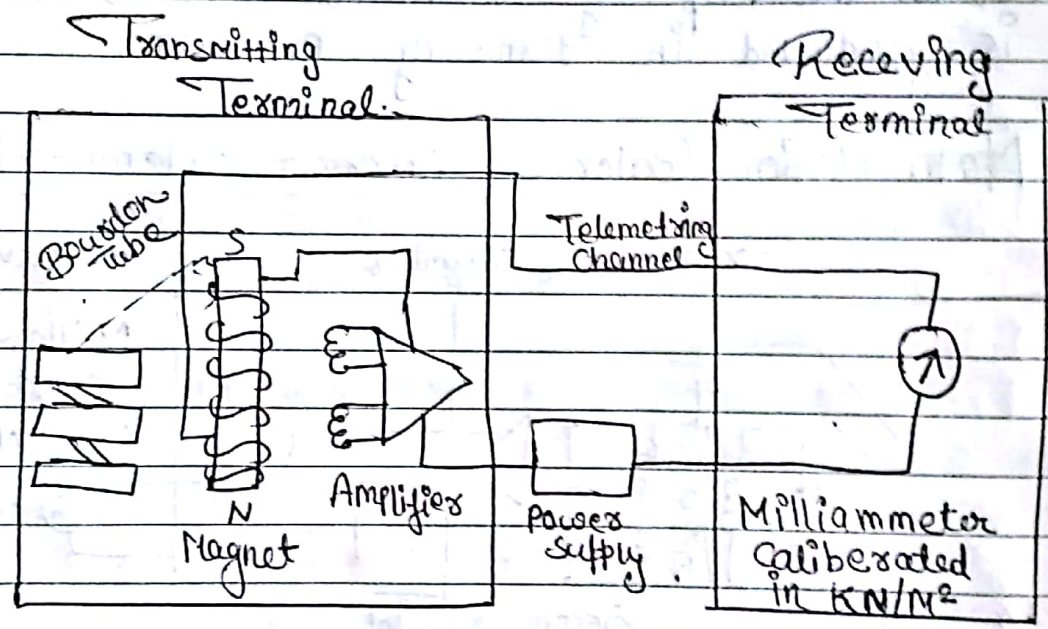 Transmitting
Terminal.
Receving
Terminal
Bourdon
tube
S
Telemetring
Channel
N
Magnet
Amplifier
Power
supply.
Milliammeter
caliberated
in KN/M²